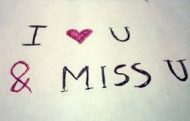 I ❤ U
& MISS U